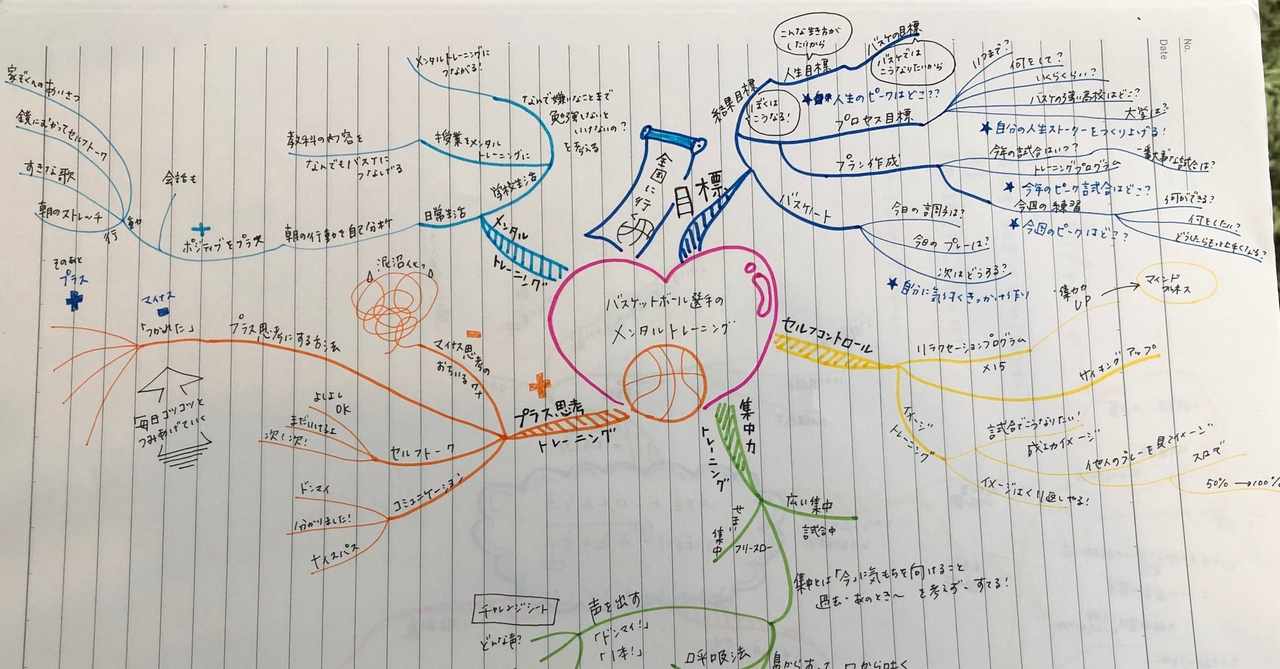 No.
Date
バスケットボール選手の
メンタルトレーニング
目標
全国に行く
結果目標
人生目標
こんな生き方が
したいから
バスケの目標
バスケでは
こうなりたいから
ぼくは
こうなる!
★人生のピークはどこ??
プロセス目標
いつまで?
何をして?
いくらくらい?
バスケの強い高校はどこ?
大学は?
★自分の人生ストーリーをつくり上げる!
プラン作成
今年の試合はいつ?
一番大事な試合は?
トレーニングプログラム
★今年のピーク試合はどこ?
今週の練習
何ができる?
何をしたい?
どうしたらもっと上手くなる?
★今週のピークはどこ??
バスケノート
今日の調子は?
今日のプレーは?
次はどうする?
★自分に気づくきっかけ作り
セルフコントロール
リラクセーションプログラム
×15
集中力
UP
マインド
フルネス
サイキングアップ
イメージ
トレーニング
試合でこうなりたい!
成功イメージ
イメージはくり返しやる!
他人のプレーを見てイメージ
スロで
50%→100%
集中力
トレーニング
広い集中
試合中
せまい
集中
フリースロー
集中とは「今」に気もちを向けること
過去・あのとき〜を考えず、すてる!
声を出す
「ドンマイ!」
「1本!」
チャレンジシート
どんな声?
呼吸法
鼻からすって 口から吐く
プラス思考
トレーニング
+
マイナス思考の
おちいるワナ
泥沼化?
プラス思考にする方法
「つかれた」
マイナス
そのあと
プラス
毎日コツコツと
つみあげていく
セルフトーク
よしよし
OK
まだいけるよ
次!次!
コミュニケーション
ドンマイ
分かりました!
ナイスパス
メンタル
トレーニング
学校生活
なんで嫌いなことまで
勉強しないと
いけないの?
を考える
メンタルトレーニングに
つながる!
授業もメンタル
トレーニングに
教科の内容を
なんでもバスケに
つなげる
日常生活
朝の行動を自己分析
+
ポジティブをプラス
会話も
行動
家ぞくへのあいさつ
鏡にむかってセルフトーク
すきな歌
朝のストレッチ